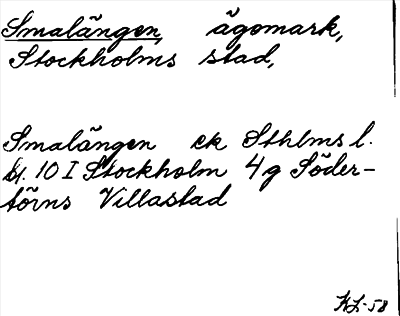 Smalängen, ägomark,
Stockholms stad,
Smalängen ek Sthlms l.
bl. 10 I Stockholm 4g Söder-
törns Villastad
KL-58